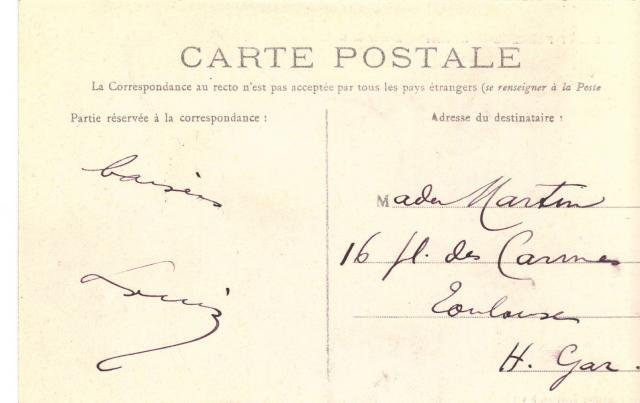 CARTE POSTALE
La Correspondance au recto n'est pas acceptée par tous les pays étrangers (se renseigner à la Poste
Partie réservée à la correspondance :
baisers
Louis
Adresse du destinataire :
Made Martin
16 pl. des Carmes
Toulouse
H. Gar.